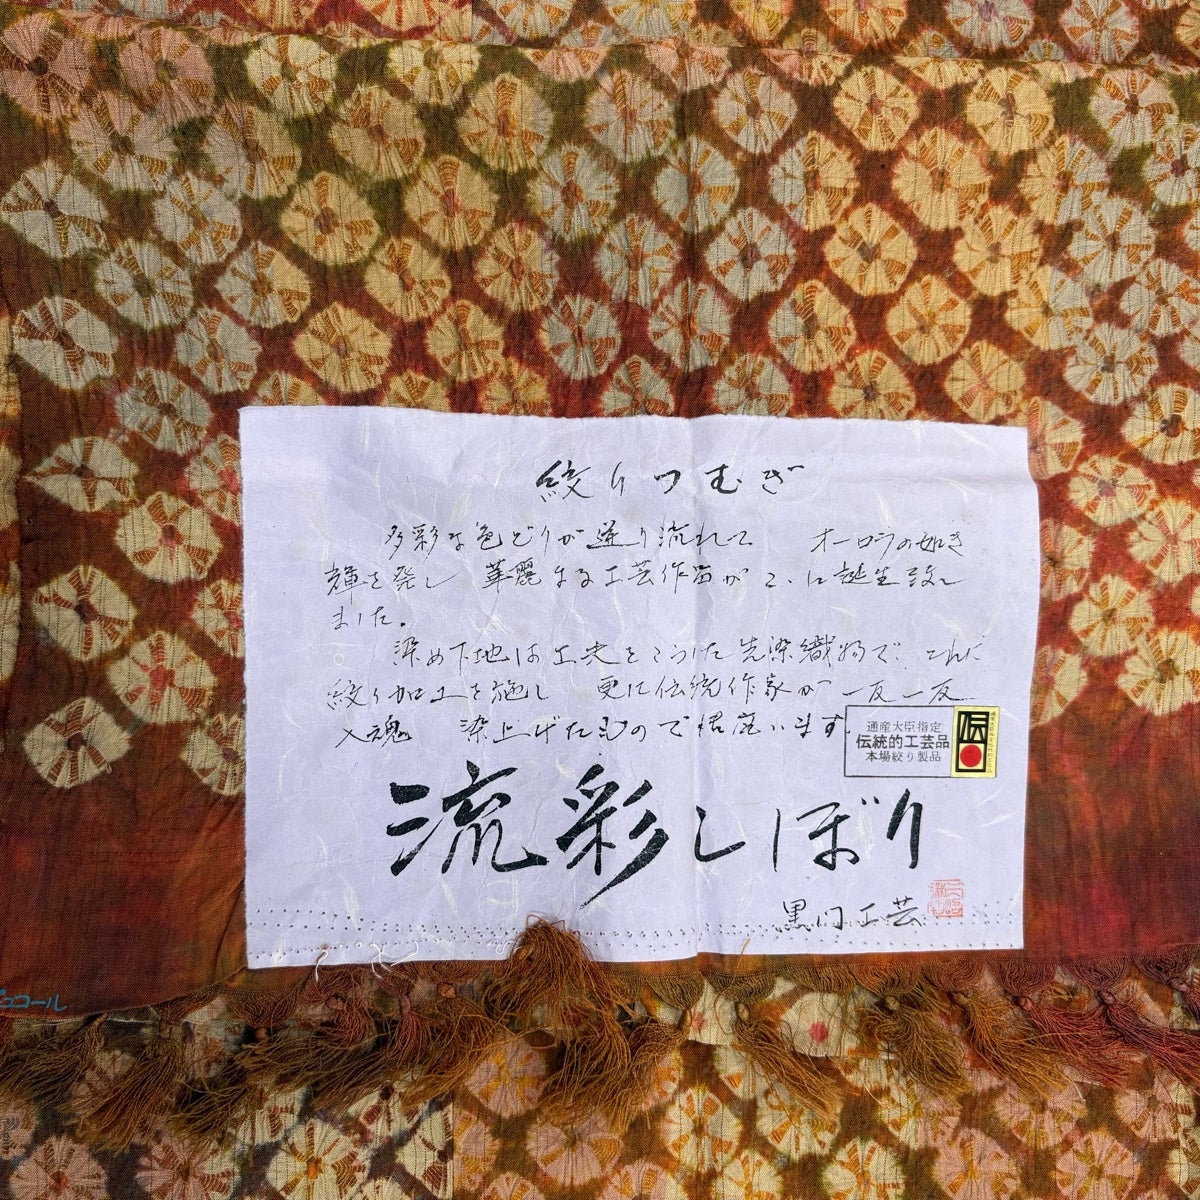 絞りつむぎ
多彩な色どりが迸り流れて オーロラの如き
輝を発し 華麗なる工芸作品がここに誕生致し
ました。
染め下地は工夫をこらした先染織物で、これに
絞り加工を施し 更に伝統作家が一反一反
入魂 染上げたもので御座います。
通産大臣指定
伝統的工芸品
本場絞り製品
伝
流彩しぼり
黒门工芸
ジュコール